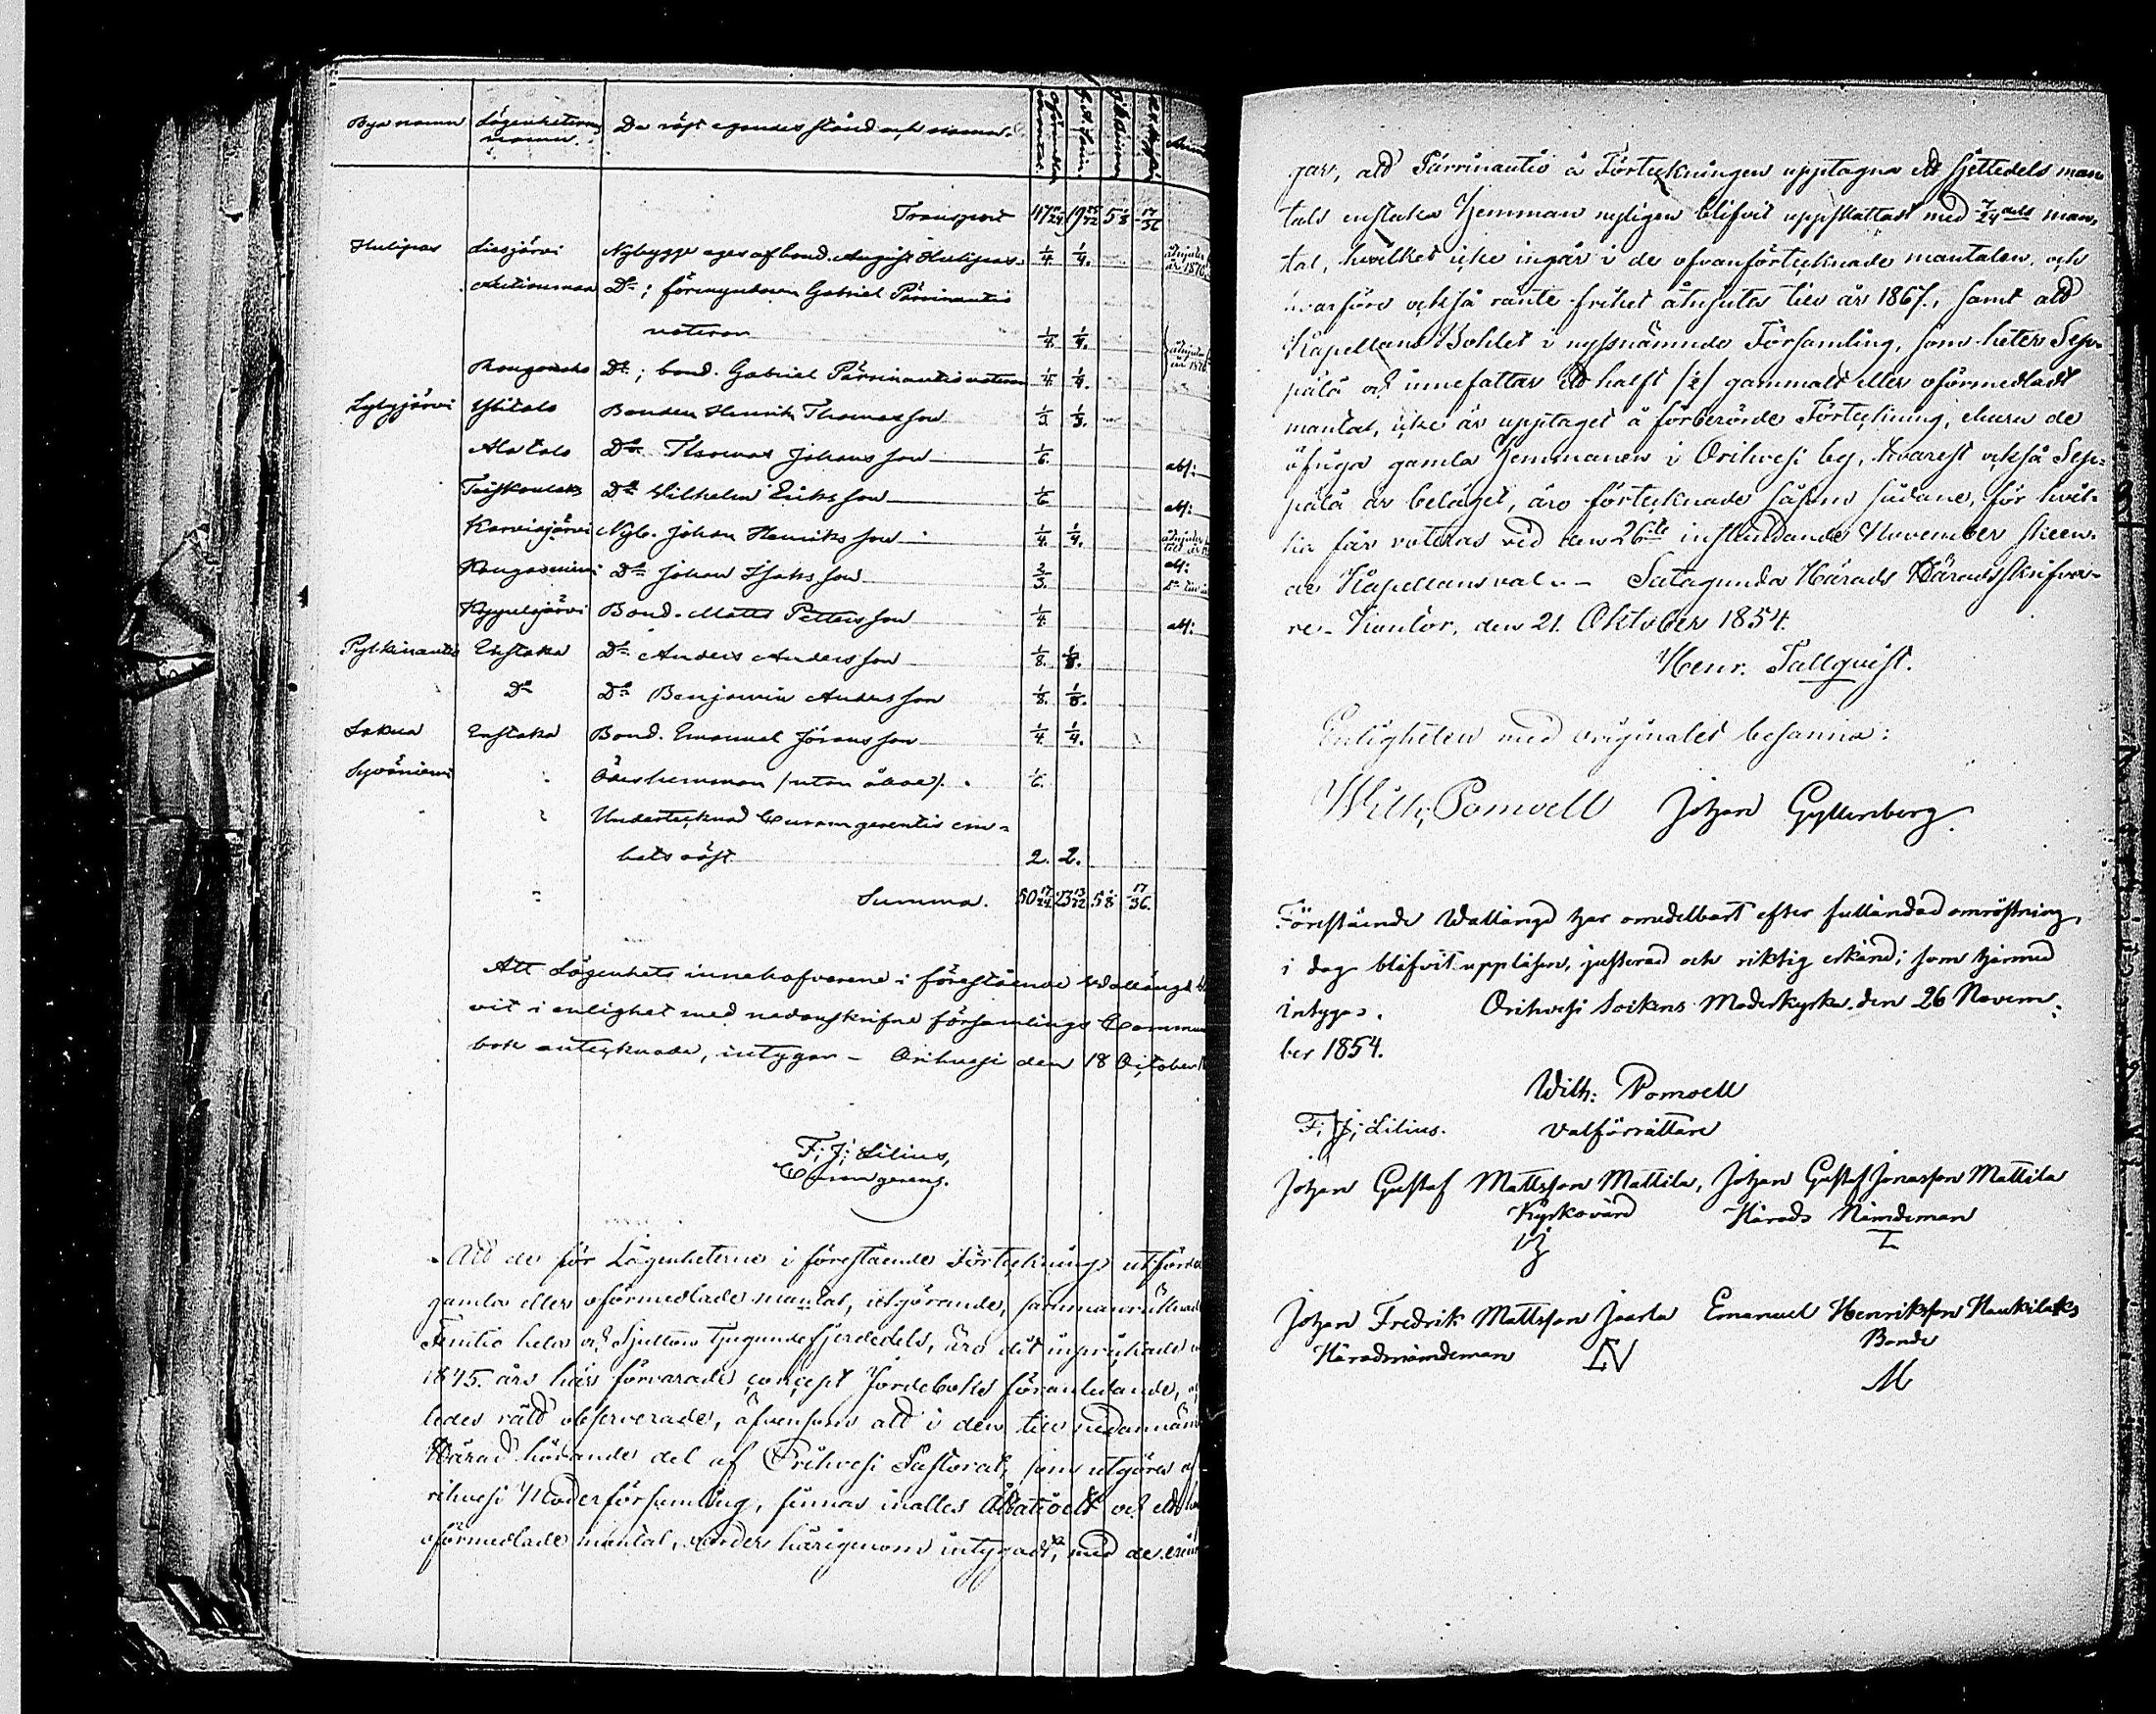 Bya namn Lägenheternas De röst egandes stånd och namn. Oförmedlade
namn. mantal.
Transport 47 11/24 19 25/72 5 1/8 17/36
Hulipas Liesjärvi Nybygge eges af bond. August Hulipas 1/4 1/4.
Autionmaa Do; förmyndaren Gabriel Pärrinautis
noteras 1/4 1/4.
Do; bond. Gabriel Pärrinautis noteras 1/4 1/4.
Lylyjärvi Ylitalo Bonden Henrik Thomasson 1/3 1/3.
Alatalo Do Thomas Johansson 1/6. abs:
Do Wilhelm Eriksson 1/6 abs:
Korvisjärvi Nyb. Johan Henriksson 1/4. 1/4.
Kangasniemi Do Johan Isaksson 2/3. abs:
Bond. Matts Pettersson 1/4 abs:
Enstaka Do Anders Andersson 1/8. 1/8.
Do Do Benjamin Andersson 1/8. 1/8.
Enstaka Bond. Emanuel Göransson 1/4. 1/4.
Ödeshemman (utan åboe). 1/6.
Undertecknad Curam gerentis em=
bets röst 2. 2.
Summa. 50 17/24 23 13/72 5 1/8 17/36.
Att Lägenhets innehafvarene i förestående Vallängd
vit i enlighet med nedanskrifne församlings Commun
bok antecknade, intygar – Orihvesi den 18 October
F: J: Lilius,
Curam gerens.
Att de för Lägenheterne i förestående Förteckning utförda
gamla eller oförmedlade mantal, utgörande, sammanräknade
Femtio hela och Sjutton tjugundefjerdedels, äro dit införde
1845. års här förvarade concept Jordeboks föranledande,
ledes rätt observerade, äfvensom att i den till nedannämnde
Härad hörande del af Orihvesi Pastorat, som utgöres af
rihvesi Moderförsamling, finnas inalles Åttatioett och ett
oförmedlade mantal, varder härigenom intygadt; med de
gar, att Pärrinautio å Förteckningen upptagna ett sjettedels man
tals enstaka Hemman nyligen blifvit uppskattadt med 7/24 dels man,
tal, hvilket icke ingår i de ofvanförtecknade mantalen, och
hvarföre också ränte frihet åtnjutes till år 1867, samt att
Kapellans Bohlet i nyssnämnde Församling, som heter Sep=
pälä och innefattar ett halft /½/ gammalt eller oförmedladt
mantal, icke är upptaget å förberörde Förteckning, ehuru de
öfriga gamla Hemmanen i Orihvesi by, hvarest också Sep=
pälä är beläget, äro förtecknade såsom sådane, för hvil=
ka får voteras vid den 26te instundande November skeen=
de Kapellansval. – Satagunda Härads Häradsskrifva=
re-Kontor, den 21. Oktober 1854.
Henr. Tallqvist.
Enligheten med originalet besanna:
Wilh: Pomoell Johan Gyllenberg.
Förestående Vallängd har omedelbart efter fulländad omröstning,
i dag blifvit uppläsen, justerad och riktig erkänd; som härmed
intygas. Orihvesi Sockens Moderkyrka, den 26 Novem=
ber 1854.
Wilh: Pomoell
F: J: Lilius. Valförrättare
Johan Gustaf Mattsson Mattila, Johan Gustaf Jonasson Mattila
Kyrkovärd Härads Nämdeman
Johan Fredrik Mattsson Jaarla Emanuel Henriksson Haukilaks
Häradsnämdeman Bonde
M